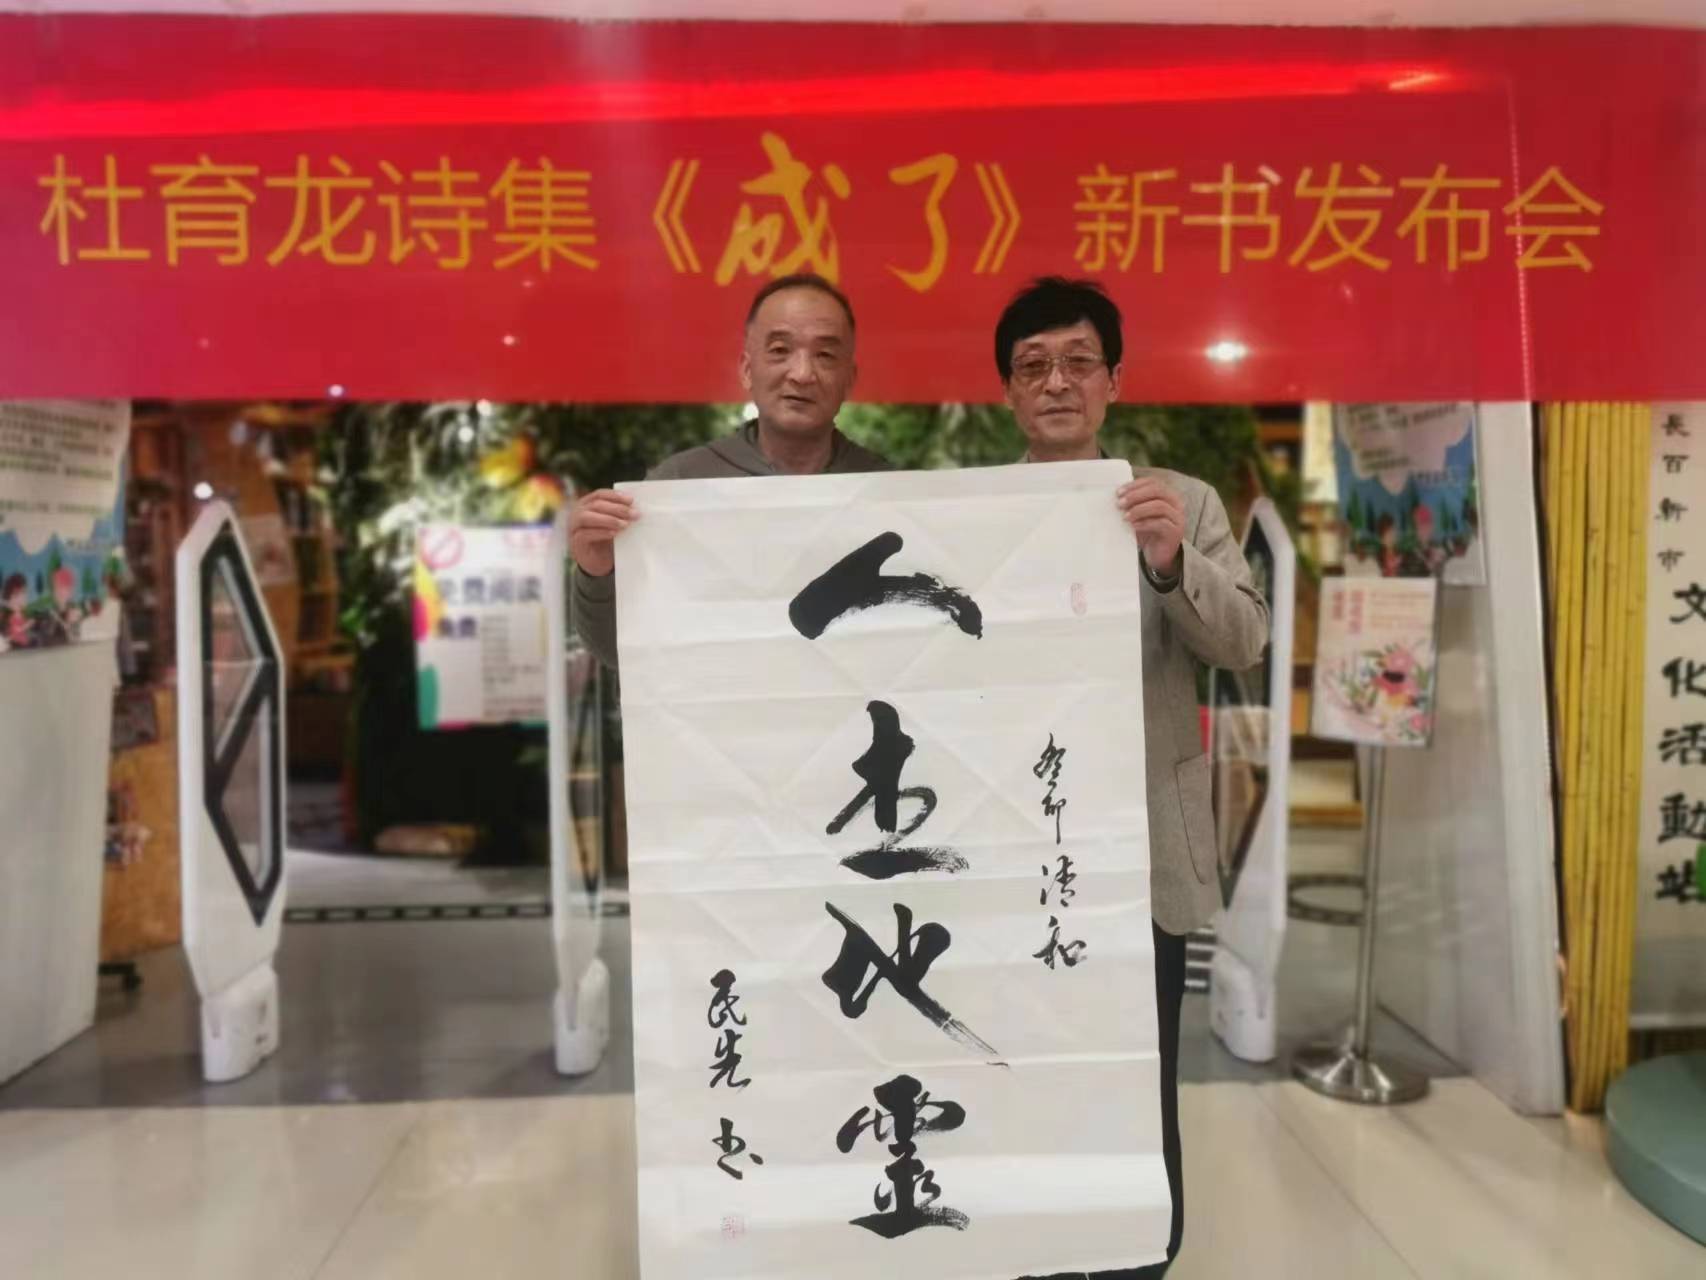 杜育龙诗集《成了》新书发布会
人杰地靈
癸卯清和
民先书
免费阅读
免费
長百新市
文化活動站